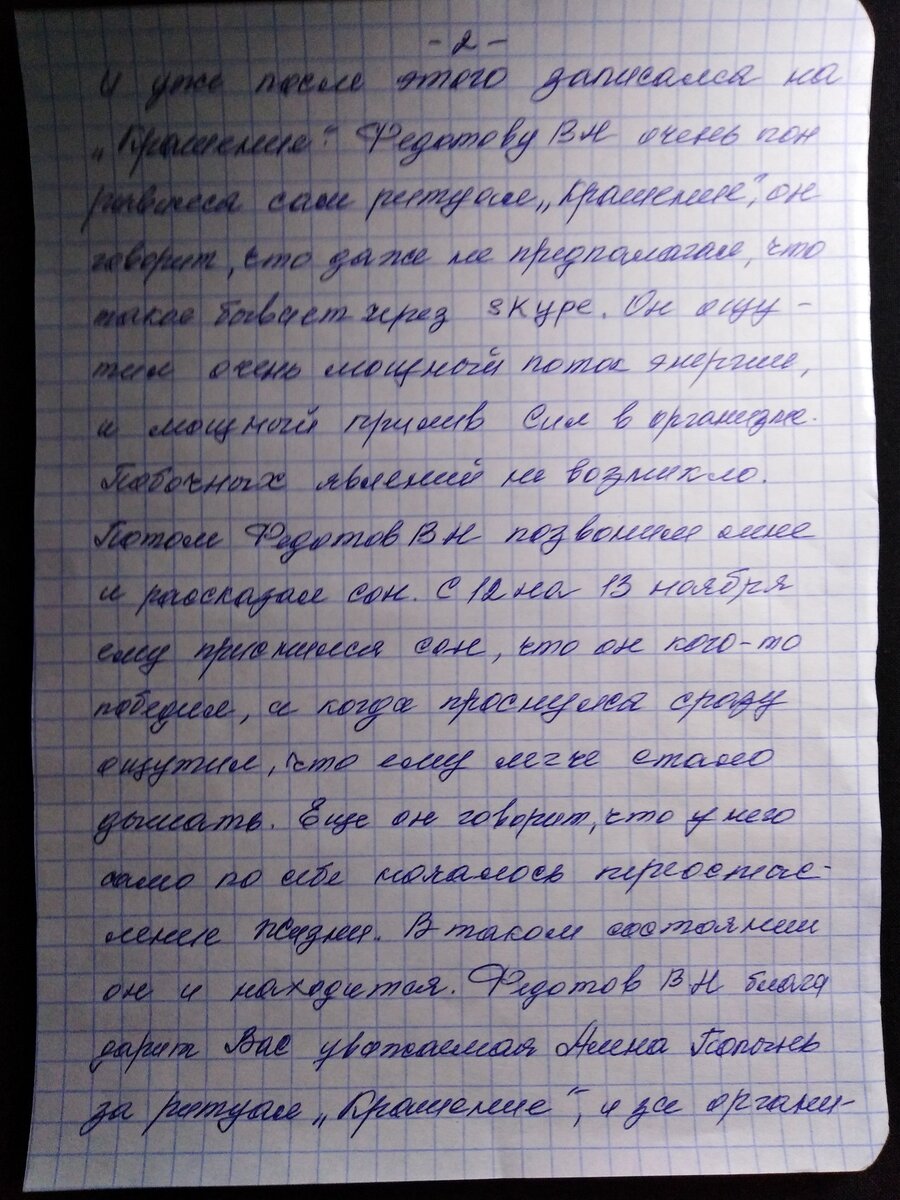 - 2 -
И уже после этого записался на
„Крашение". Федотову ВН очень пон
равился сам ритуал „Крашение", он
говорит, что даже не предполагал, что
такое бывает через skype. Он ощу-
тил очень мощный поток энергии,
и мощный прилив сил в организме.
Побочных явлений не возникло.
Потом Федотов ВН позвонил мне
и рассказал сон. С 12 на 13 ноября
ему приснился сон, что он кого-то
победил, и когда проснулся сразу
ощутил, что ему легче стало
дышать. Еще он говорит, что у него
само по себе началось переосмыс-
ление жизни. В таком состоянии
он и находится. Федотов ВН блага
дарит Вас уважаемая Алина
за ритуал „Крашение", и за органи-